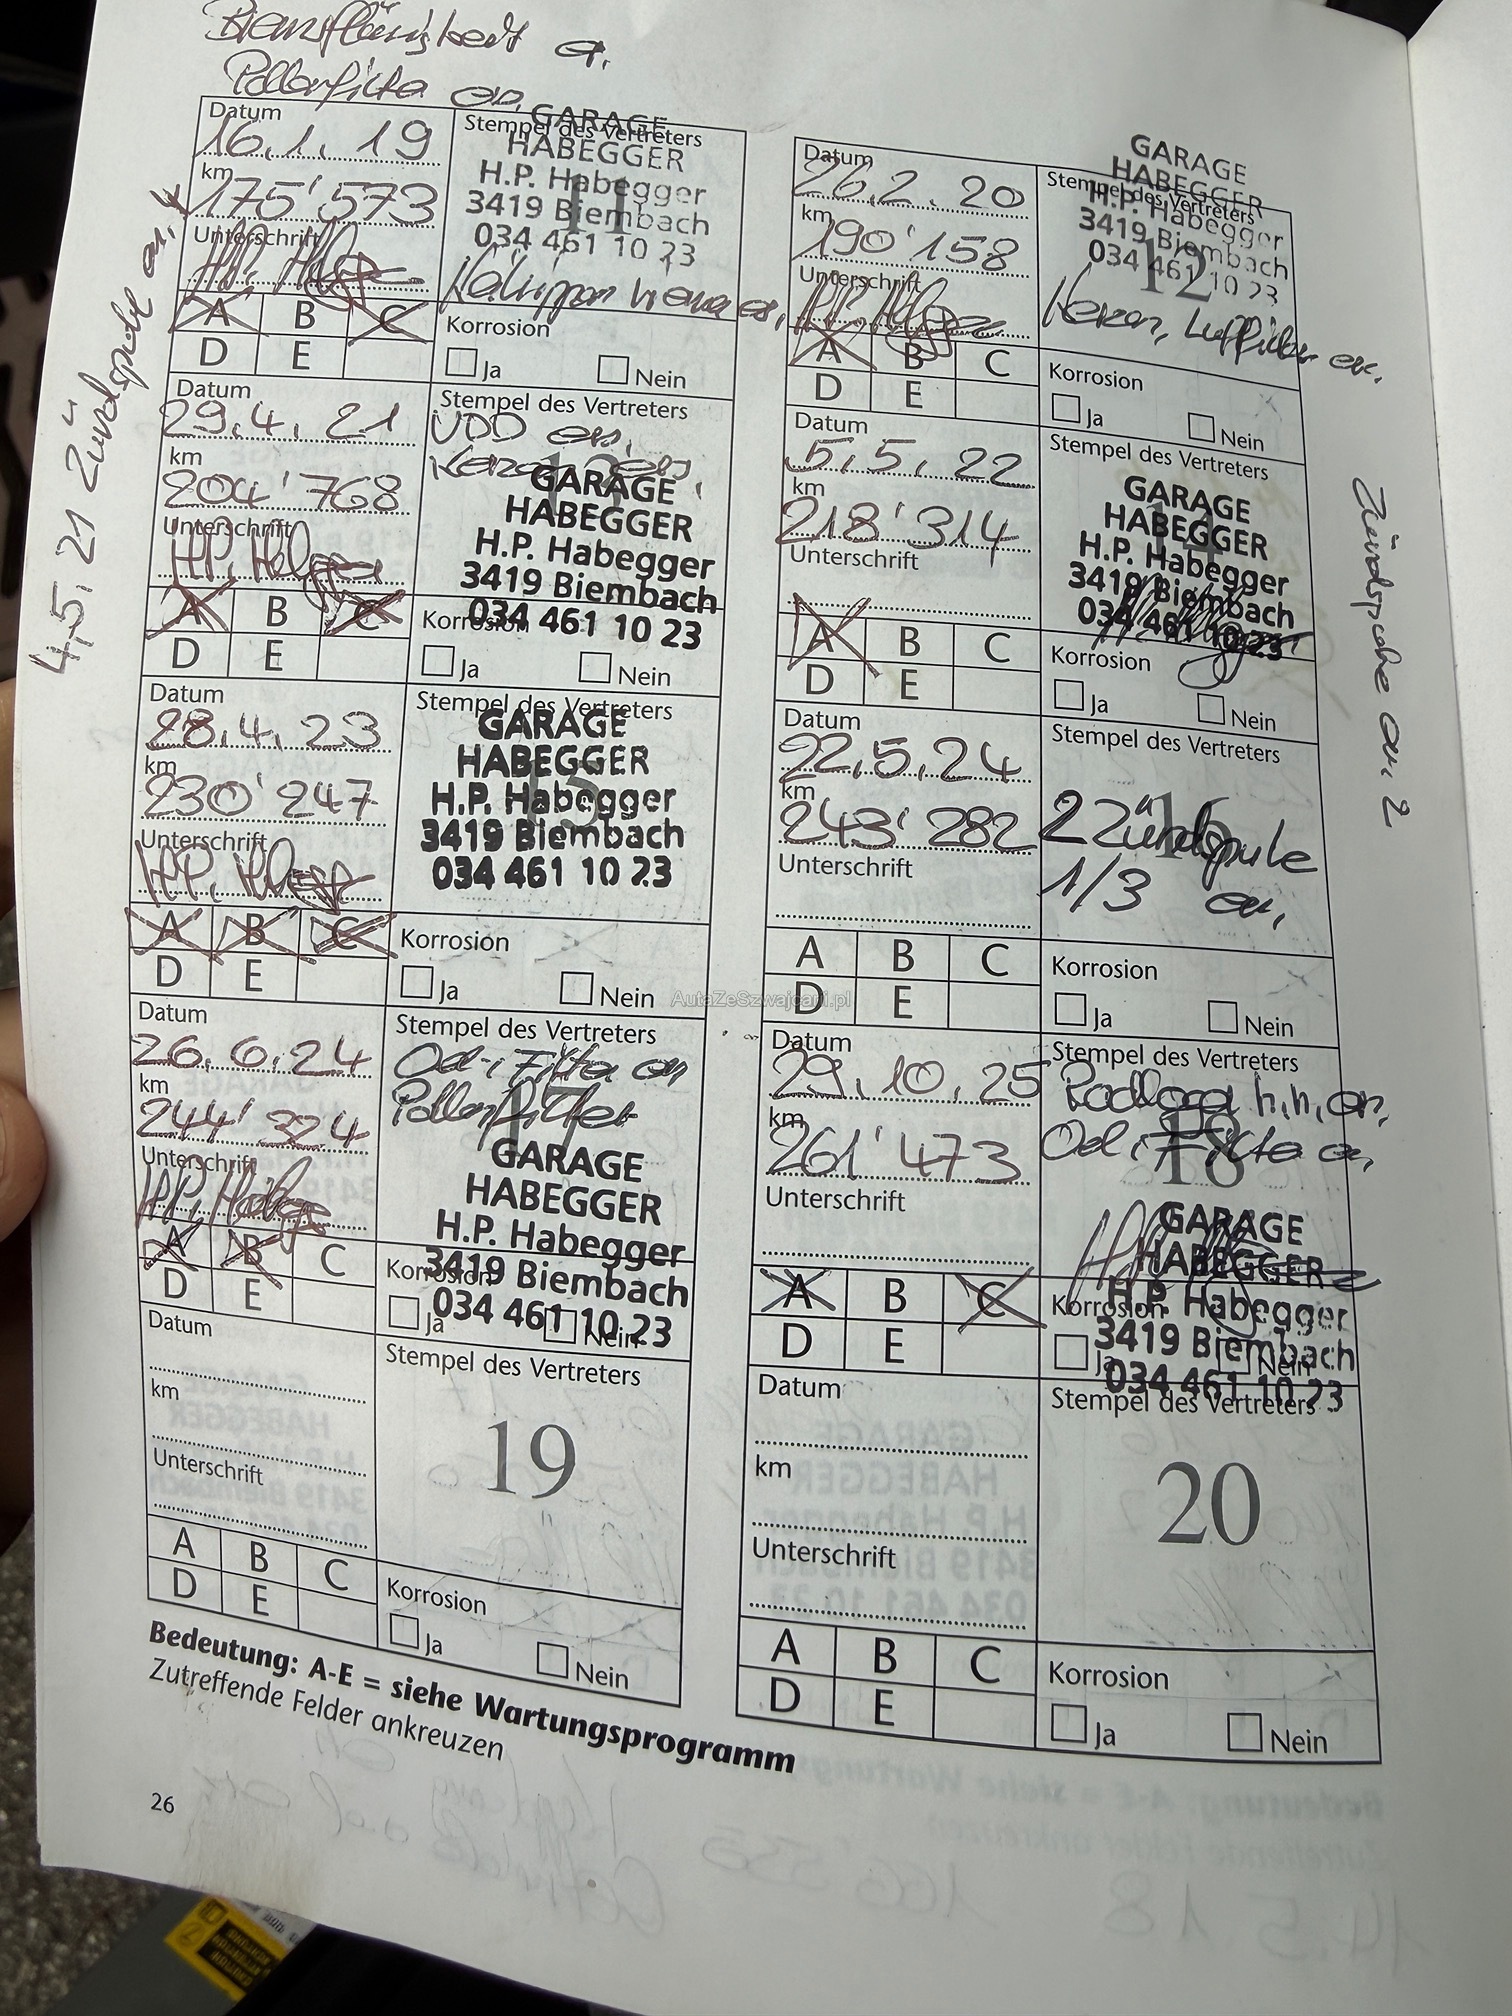 Bremsflüssigkeit er.
Pollenfilter er.
Datum
16.1.19
Stempel des Vertreters
GARAGE
HABEGGER
H.P. Habegger
3419 Biembach
034 461 10 23
11
km
175'573
Unterschrift
A B C
D E
Korrosion
Ja Nein
Datum
26.2.20
Stempel des Vertreters
GARAGE
HABEGGER
H.P. Habegger
3419 Biembach
034 461 10 23
12
km
190'158
Unterschrift
Kerzen, Luftfilter er.
A B C
D E
Korrosion
Ja Nein
4.5.21 Zündspule er.
Datum
29.4.21
Stempel des Vertreters
Kerzen er.
13
GARAGE
HABEGGER
H.P. Habegger
3419 Biembach
034 461 10 23
km
204'768
Unterschrift
A B C
D E
Korrosion
Ja Nein
Datum
5.5.22
Stempel des Vertreters
14
GARAGE
HABEGGER
H.P. Habegger
3419 Biembach
034 461 10 23
km
218'314
Unterschrift
A B C
D E
Korrosion
Ja Nein
Zündspule er. 2
Datum
28.4.23
Stempel des Vertreters
15
GARAGE
HABEGGER
H.P. Habegger
3419 Biembach
034 461 10 23
km
230'247
Unterschrift
A B C
D E
Korrosion
Ja Nein
Datum
22.5.24
Stempel des Vertreters
16
2 Zündspule
1/3 er.
km
243'282
Unterschrift
A B C
D E
Korrosion
Ja Nein
AutaZeSzwajcarii.pl
Datum
26.6.24
Stempel des Vertreters
Oel + Filter er
Pollenfilter
17
GARAGE
HABEGGER
H.P. Habegger
3419 Biembach
034 461 10 23
km
244'324
Unterschrift
A B C
D E
Korrosion
Ja Nein
Datum
29.10.25
Stempel des Vertreters
Radlager h.h. er.
Oel + Filter er.
18
GARAGE
HABEGGER
H.P. Habegger
3419 Biembach
034 461 10 23
km
261'473
Unterschrift
A B C
D E
Korrosion
Ja Nein
Datum
Stempel des Vertreters
19
km
Unterschrift
A B C
D E
Korrosion
Ja Nein
Datum
Stempel des Vertreters
20
km
Unterschrift
A B C
D E
Korrosion
Ja Nein
Bedeutung: A-E = siehe Wartungsprogramm
Zutreffende Felder ankreuzen
26